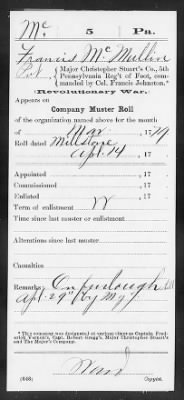 Mc 5 Pa.
Francis McMullin
Pvt, Major Christopher Stuart's Co., 5th
Pennsylvania Reg't of Foot, commanded
by Col. Francis Johnston.*
Revolutionary War.
Appears on
Company Muster Roll
of the organization named above for the month
of Mar, 1779
Roll dated Millstone
Apr. 14, 177
Appointed, 17
Commissioned, 17
Enlisted, 17
Term of enlistment W
Time since last muster or enlistment
Alterations since last muster
Casualties
Remarks: On furlough till
Apr. 29" by
*This company was designated at various times as Captain
Vernon's, Capt. Robert Gregg's, Major Christopher Stuart's
and The Major's Company.
Ward
(543) Copyist.